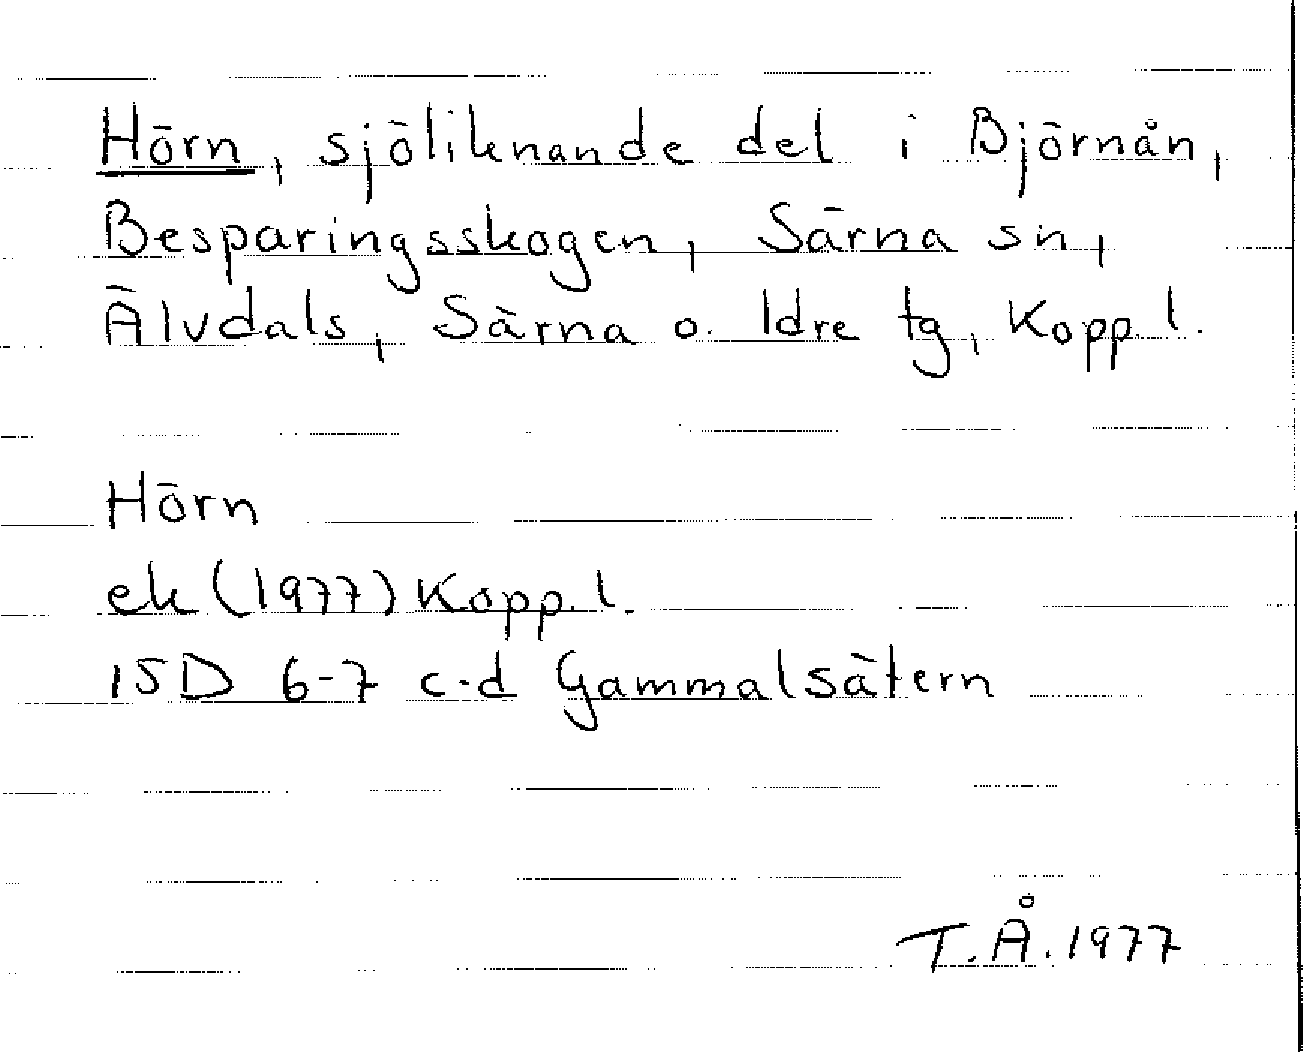 Hörn, sjöliknande del i Björnån,
Besparingsskogen, Särna sn,
Älvdals, Särna o. Idre tg, Kopp. l.
Hörn
ek (1977) Kopp. l.
15D 6-7 c-d Gammalsätern
T.Å. 1977